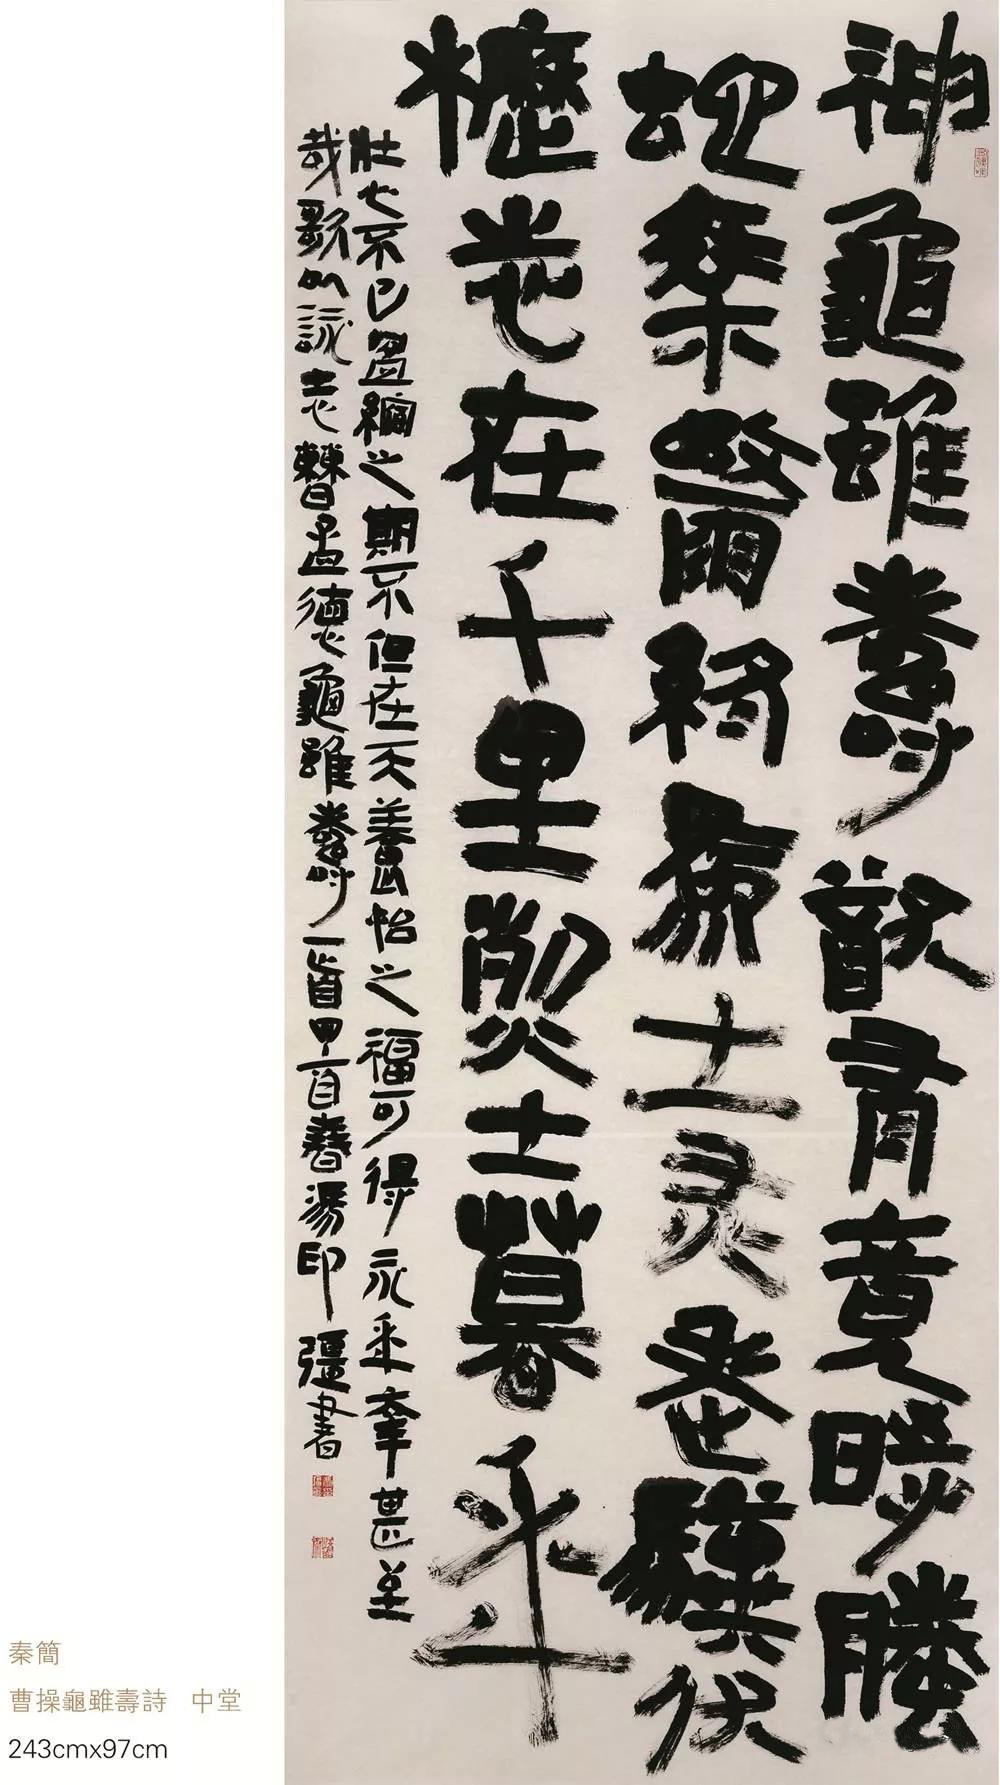 神龜雖壽猷有竟時騰
蛇乘霧終為土灰老驥伏
櫪志在千里烈士暮年
壯心不已盈縮之期不但在天養怡之福可得永年幸甚至
哉歌以詠志曹孟德龜雖壽一首甲春湯印彊書
秦簡
曹操龜雖壽詩 中堂
243cmx97cm